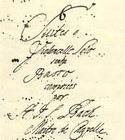 6
Suites a
Violoncello Solo
senza
Basso
composées
par
J. S. Bach
Maitre de Chapelle